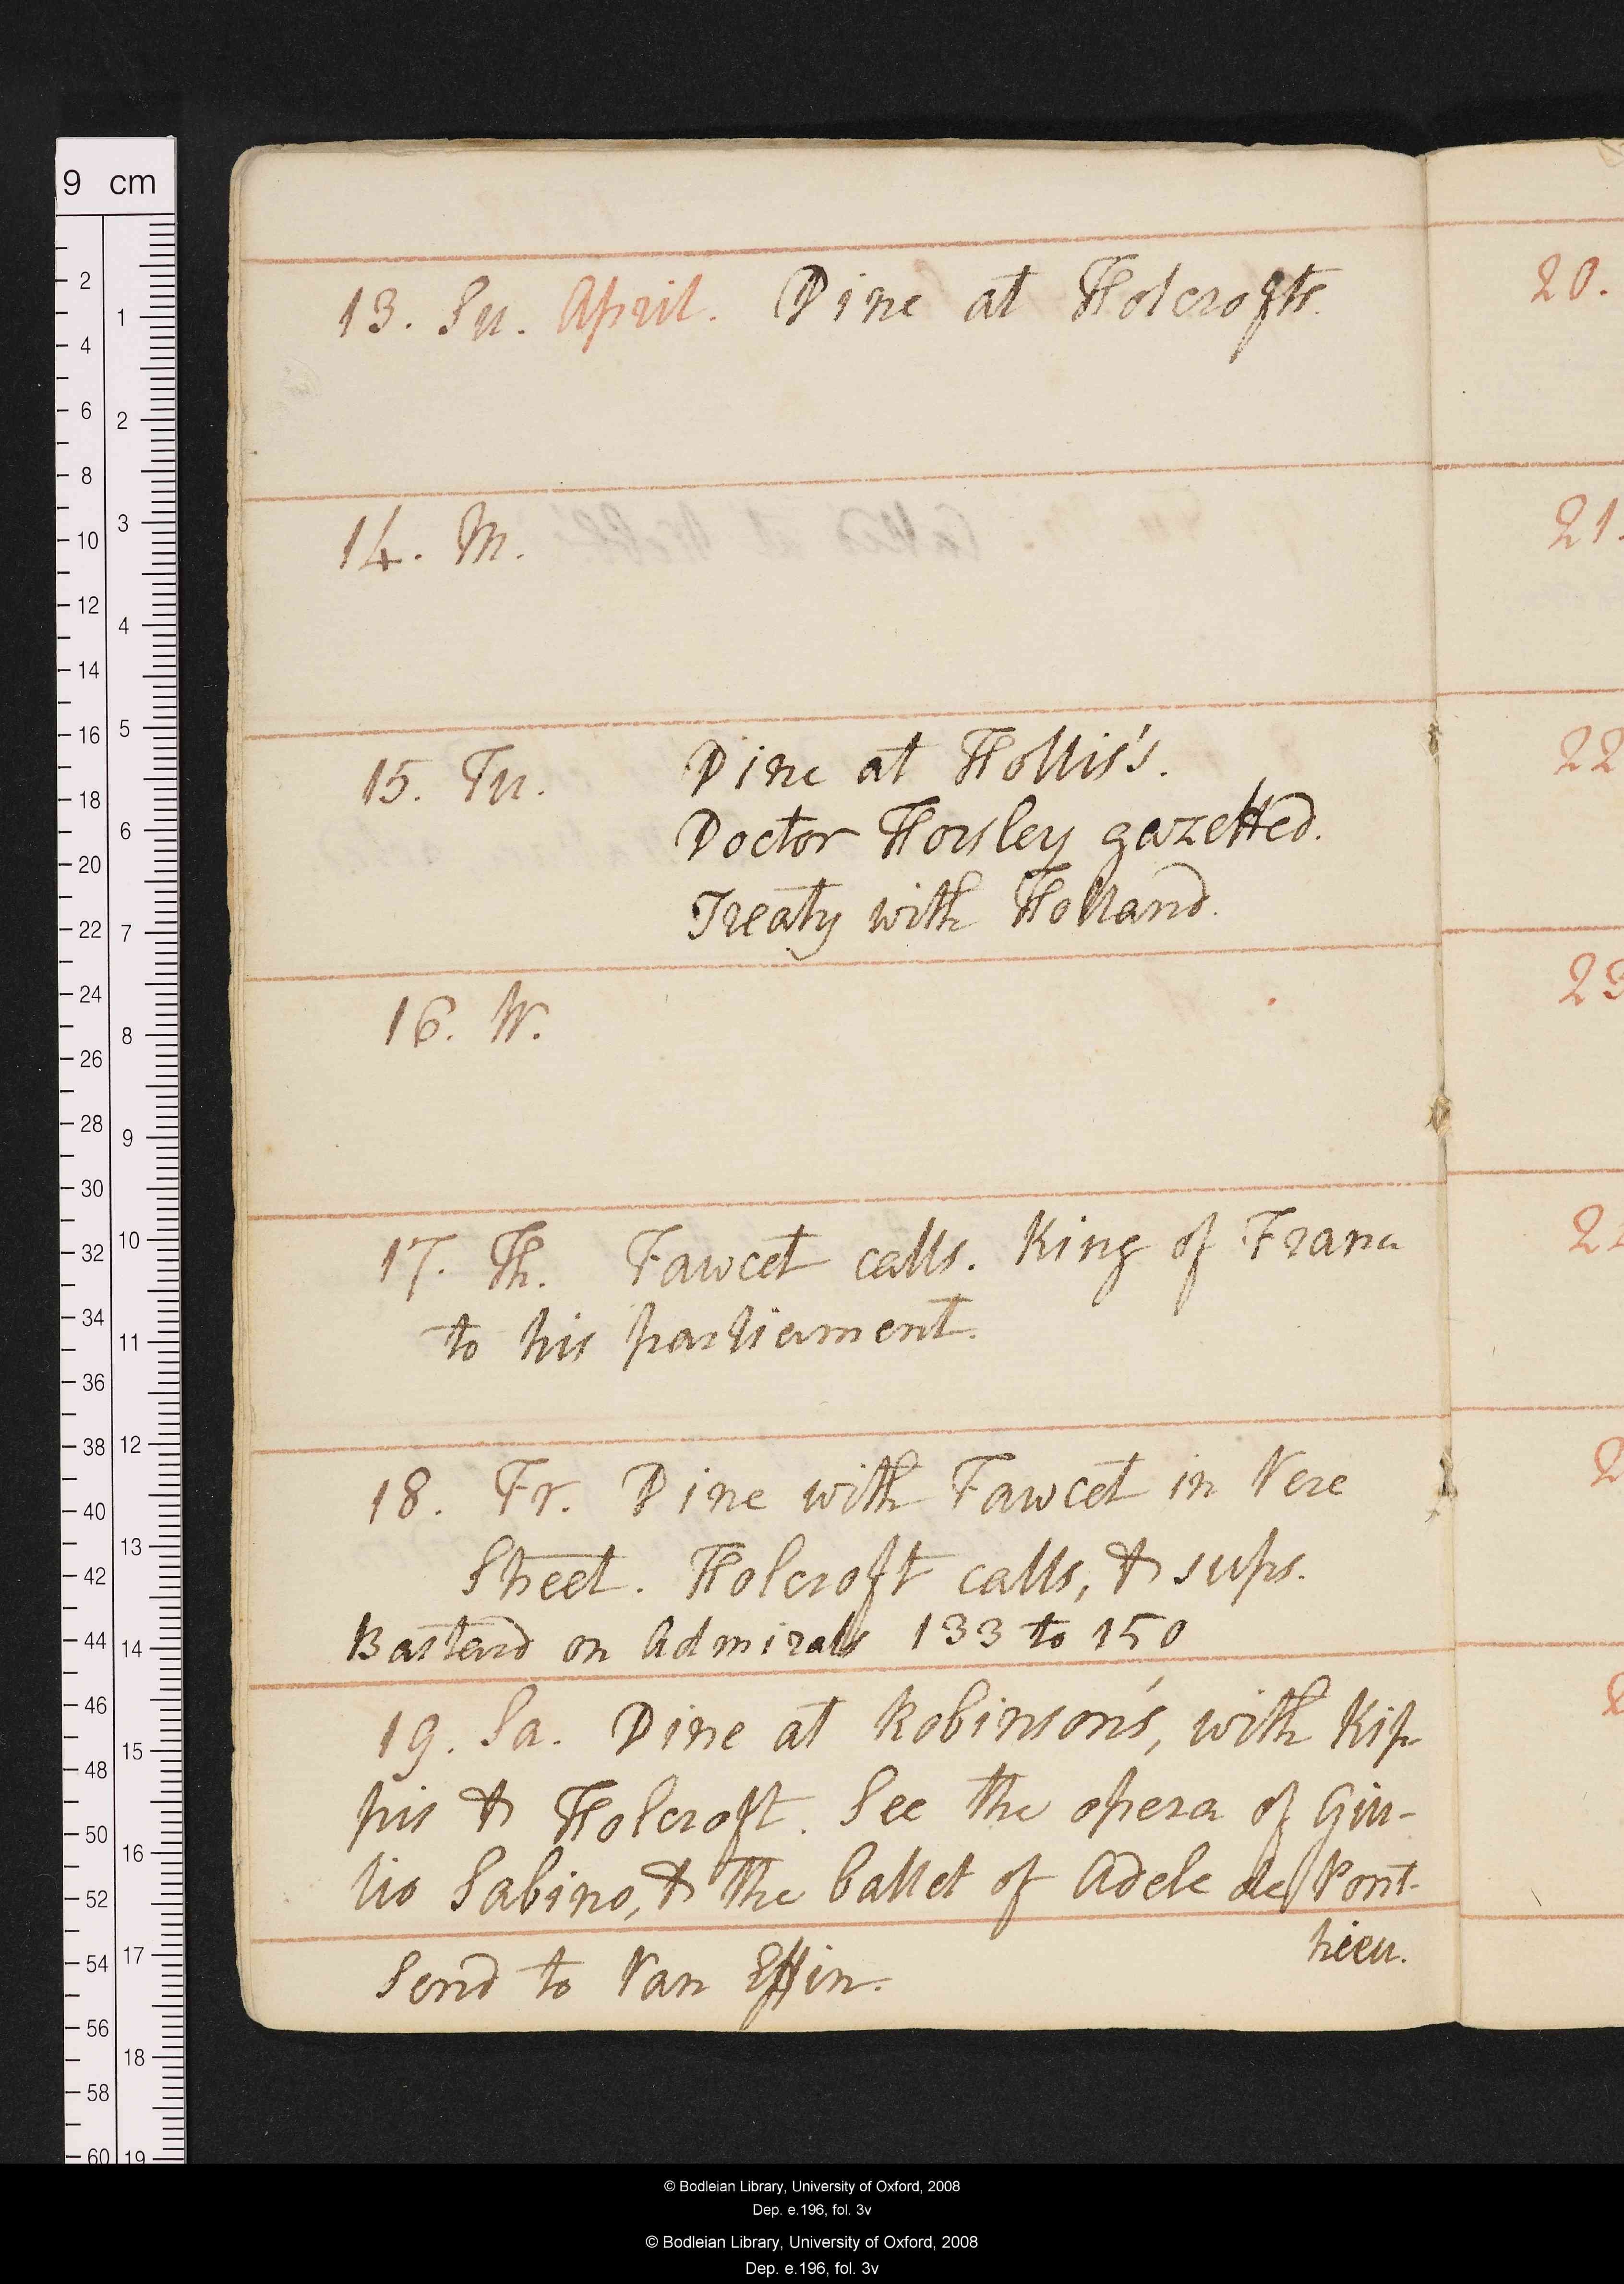 13. Su. April. Dine at Holcrofts.
14. M.
15. Tu. Dine at Hollis's.
Doctor Horsley gazetted.
Treaty with Holland.
16. W.
17. Th. Fawcet calls. King of France
to his parliament.
18. Fr. Dine with Fawcet in Vere
Street. Holcroft calls, & sups.
Bastard on Admirals 133 to 150
19. Sa. Dine at Robinson's, with Kip-
pis & Holcroft. See the opera of Giu-
lio Sabino, & the ballet of Adele de Pont-
hieu.
Send to Van Effin.
20.
21.
22
23
2
2
9 cm
2
4
6
8
10
12
14
16
18
20
22
24
26
28
30
32
34
36
38
40
42
44
46
48
50
52
54
56
58
60
1
2
3
4
5
6
7
8
9
10
11
12
13
14
15
16
17
18
19
© Bodleian Library, University of Oxford, 2008
Dep. e.196, fol. 3v
© Bodleian Library, University of Oxford, 2008
Dep. e.196, fol. 3v